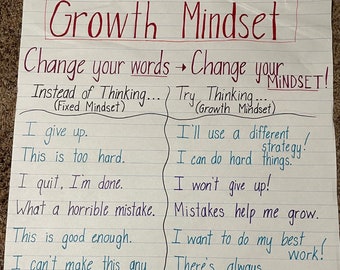 Growth Mindset
Change your words → Change your MINDSET!
Instead of Thinking... Try Thinking...
(Fixed Mindset) (Growth Mindset)
I give up. I'll use a different strategy!
This is too hard. I can do hard things.
I quit, I'm done. I won't give up!
What a horrible mistake. Mistakes help me grow.
This is good enough. I want to do my best work!
I can't make this any There's always